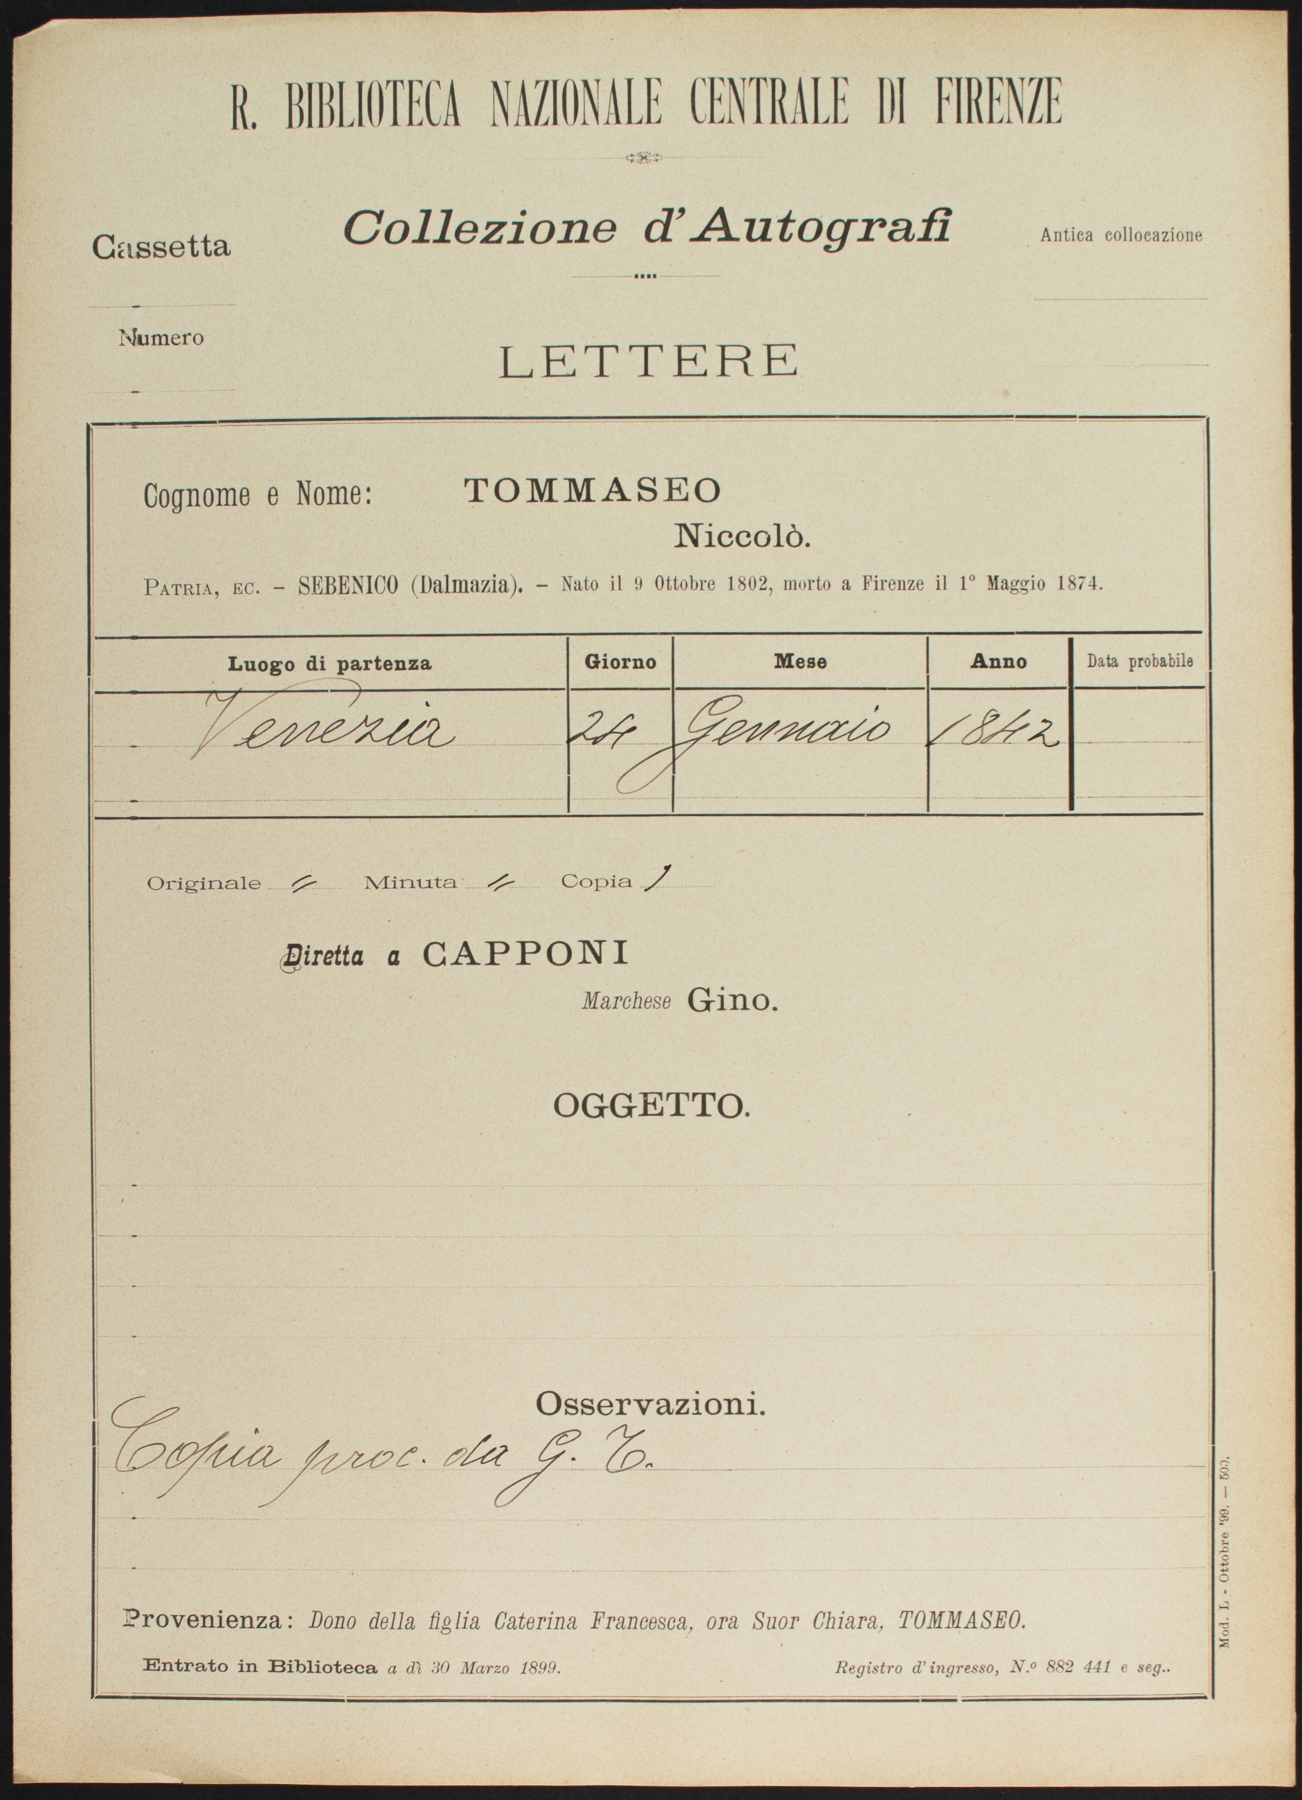 R. BIBLIOTECA NAZIONALE CENTRALE DI FIRENZE
Collezione d'Autografi
Cassetta
Antica collocazione
Numero
LETTERE
Cognome e Nome: TOMMASEO
Niccolò.
PATRIA, EC. – SEBENICO (Dalmazia). – Nato il 9 Ottobre 1802, morto a Firenze il 1º Maggio 1874.
Luogo di partenza Giorno Mese Anno Data probabile
Venezia 24 Gennaio 1842
Originale " Minuta " Copia 1
Diretta a CAPPONI
Marchese Gino.
OGGETTO.
Osservazioni.
Copia proc. da G. T.
Provenienza: Dono della figlia Caterina Francesca, ora Suor Chiara, TOMMASEO.
Entrato in Biblioteca a dì 30 Marzo 1899. Registro d'ingresso, N.º 882 441 e seg..
Mod. L - Ottobre '99. — 500.